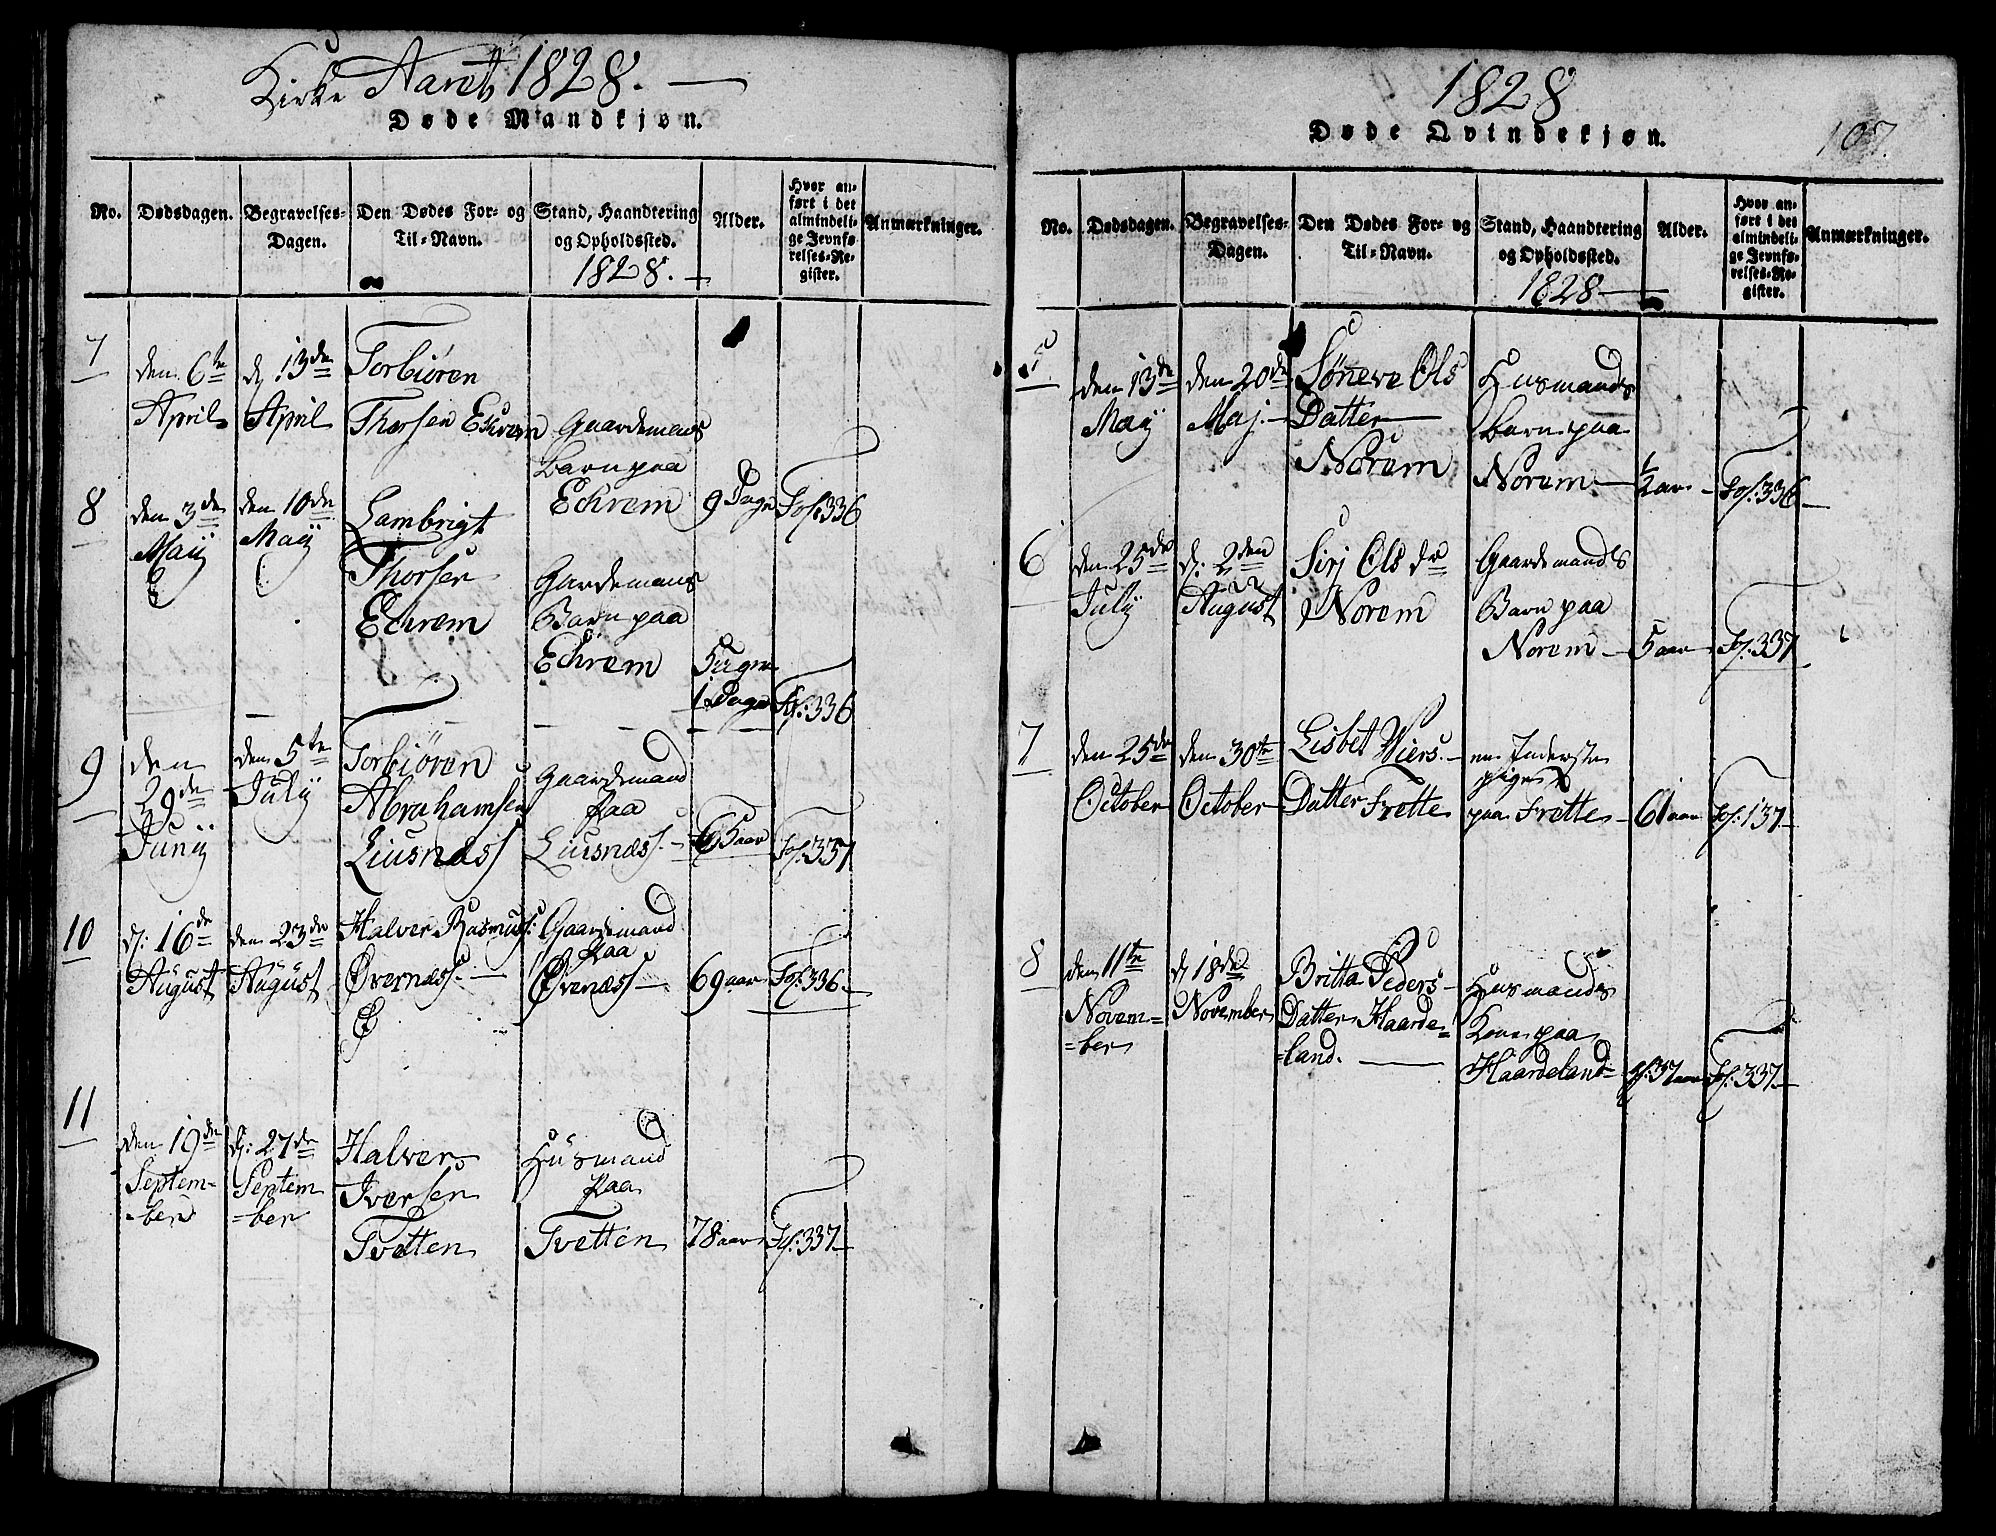 Kirke Aaret 1828.
Døde Mandkjøn.
No. Dødsdagen. Begravelses-Dagen. Den Dødes For- og Til-Navn. Stand, Haandtering og Opholdssted. Alder. Hvor anført i det almindelige Jevnførelses-Register. Anmærkninger.
1828.
7 den 6te April d 13de April Torbiøren Thorsen Echrem Gaardemans Barn paa Echrem 9 Dage Fol: 336
8 den 3de Maij den 10de Maij Lambrigt Thorsen Echrem Gardemans Barn paa Echrem Fol: 336
9 den 29de Junij den 5te Julij Torbiøren Abrahamsen Liusnæss Gaardemand paa Liusnæss. 65 aar Fol: 337
10 d: 16de August den 23de August Halver Rasmuss: Øvernæss. Gaardemand paa Øvenæss 69 aar Fol: 336
11 den 19de September d: 27de September Halver Iversen Tvetten Husmand paa Tvetten 78 aar Fol: 337
1828
Døde Qvindekjøn.
107.
No. Dødsdagen. Begravelses-Dagen. Den Dødes For- og Til-Navn. Stand, Haandtering og Opholdssted. Alder. Hvor anført i det almindelige Jevnførelses-Register. Anmærkninger.
1828
5 den 13de Maij den 20de Maj Søneve Ols Datter Norem Husmands barn paa Norem ½ aar Fol: 336
6 den 25de Julij d: 2den August Sirj Ols dr Norem Gaardemands Barn paa Norem 5 aar Fol: 337
7 den 25de October den 30te October Lisbet Wiers Datter Frette en Inderste pige paa Frette 61 aar Fol: 137
8 den 11te November d 18de November Britta Peders Datter Haardeland. Husmands Kone paa Haardeland 37 aar Fol: 337